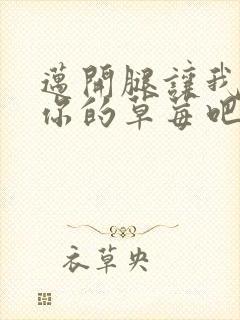 邁開腿讓我
你的草莓吧
衣草央